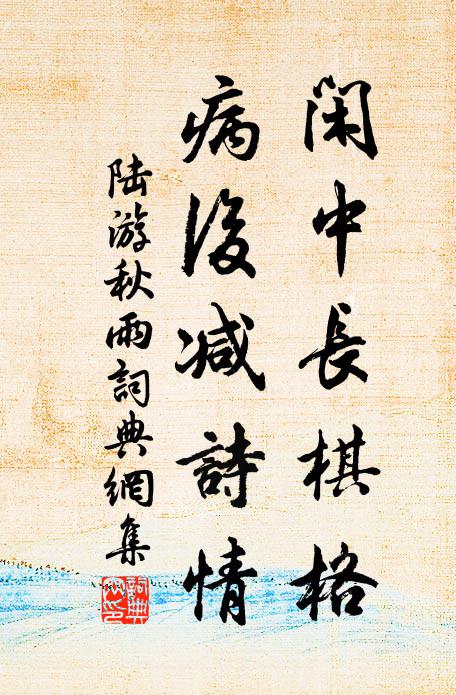 閑中長棋格
病後减詩情
陆游秋雨詞典網集